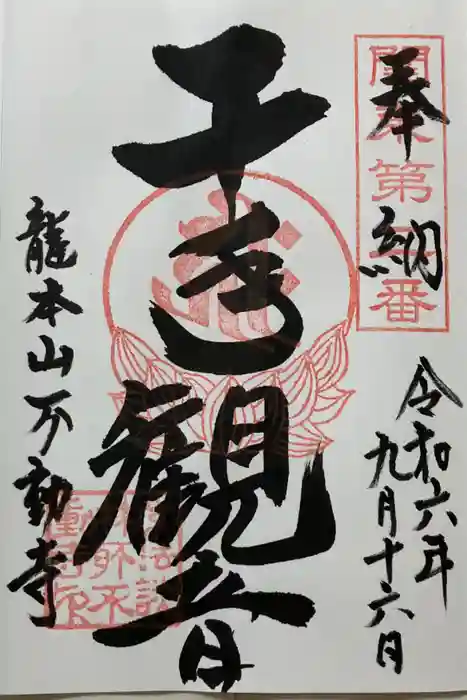 奉納
關東第二番
令和六年
九月十六日
千手観音
龍本山不動寺